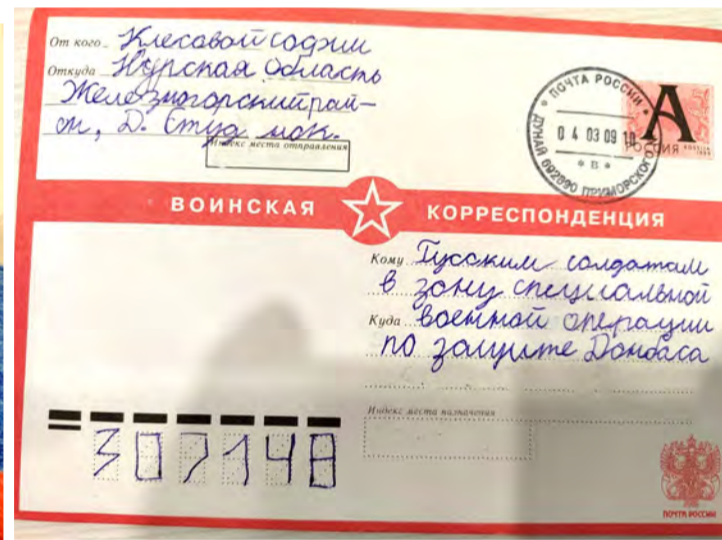 От кого Клесовой Софии
Откуда Курская область
Железногорский рай-
он, Д. Студ нок.
Индекс места отправления
ПОЧТА РОССИИ
04 03 09 10
* В *
ДУНАЙ 692890 ПРИМОРСКОГО
А
РОССИЯ
ВОИНСКАЯ КОРРЕСПОНДЕНЦИЯ
Кому Русским солдатам
в зону специальной
Куда военной операции
по защите Донбаса
Индекс места назначения
307148
ПОЧТА РОССИИ